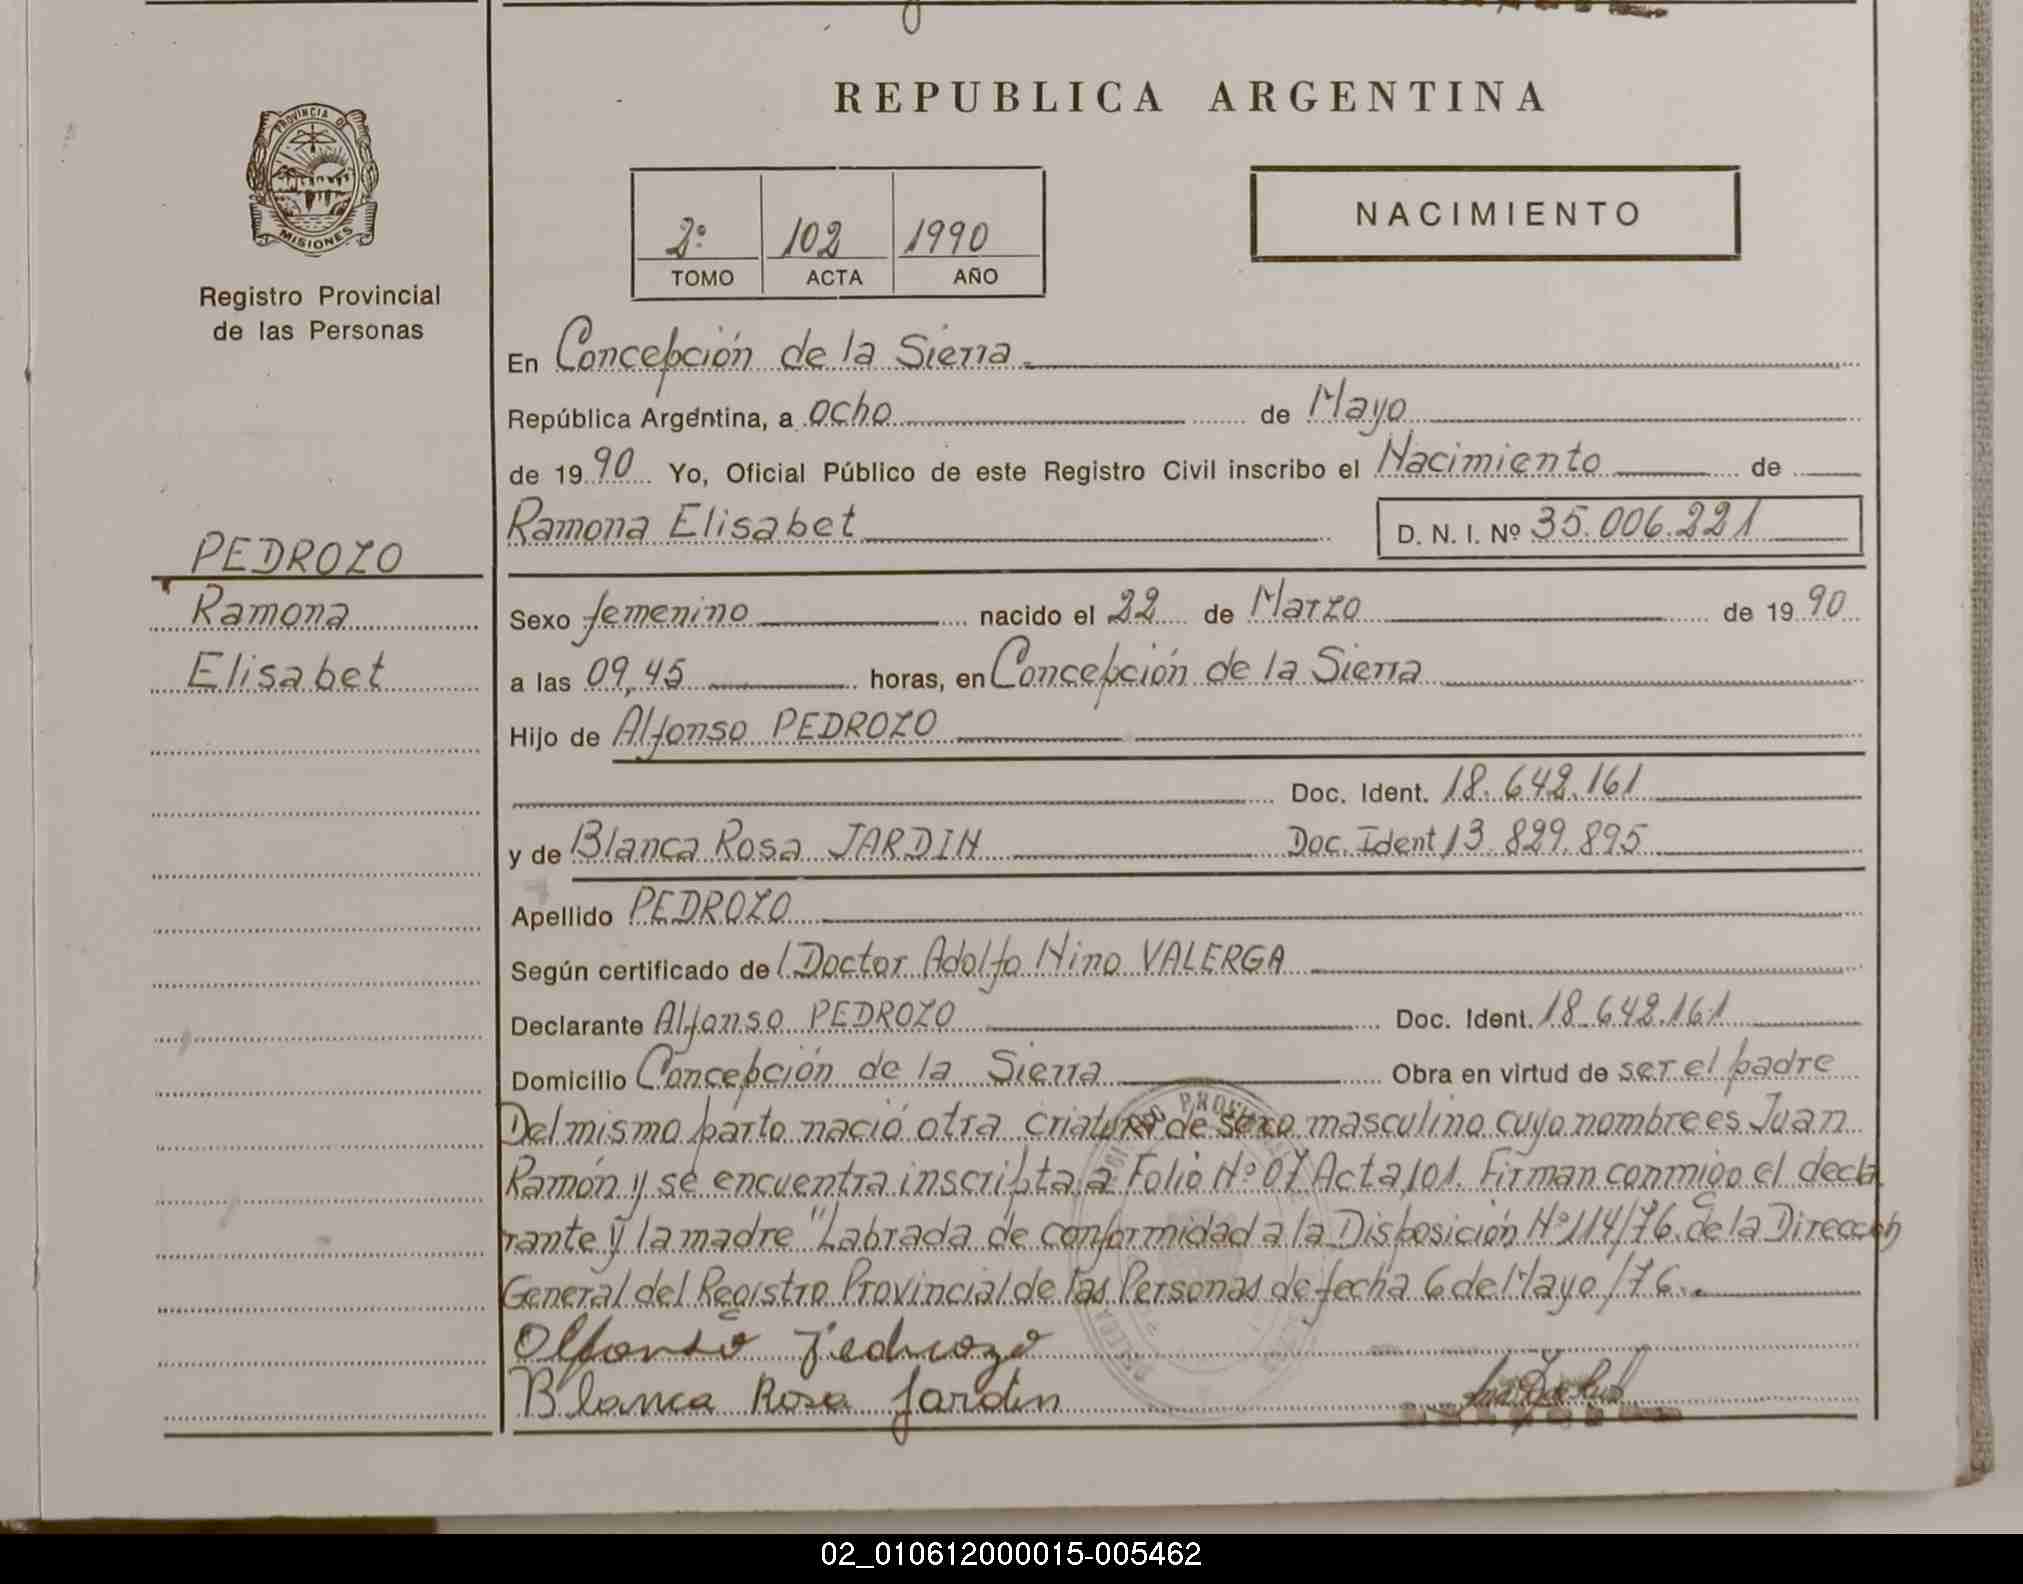 REPUBLICA ARGENTINA
PROVINCIA DE
MISIONES
Registro Provincial
de las Personas
2º 102 1990
TOMO ACTA AÑO
NACIMIENTO
En Concepción de la Sierra
República Argentina, a ocho de Mayo
de 1990 Yo, Oficial Público de este Registro Civil inscribo el Nacimiento de
Ramona Elisabet D. N. I. Nº 35.006.221
PEDROZO
Ramona
Elisabet
Sexo femenino nacido el 22 de Marzo de 1990
a las 09,45 horas, en Concepción de la Sierra
Hijo de Alfonso PEDROZO
Doc. Ident. 18.642.161
y de Blanca Rosa JARDIN Doc. Ident 13.829.895
Apellido PEDROZO
Según certificado de l Doctor Adolfo Nino VALERGA
Declarante Alfonso PEDROZO Doc. Ident. 18.642.161
Domicilio Concepción de la Sierra Obra en virtud de ser el padre
Del mismo parto nació otra criatura de sexo masculino cuyo nombre es Juan
Ramón y se encuentra inscripta a Folio Nº 07 Acta 101. Firman conmigo el decla
rante y la madre "Labrada de conformidad a la Disposición Nº 114/76 de la Dirección
General del Registro Provincial de las Personas de fecha 6 de Mayo/76.
Alfonso Pedrozo
Blanca Rosa Jardin
02_010612000015-005462